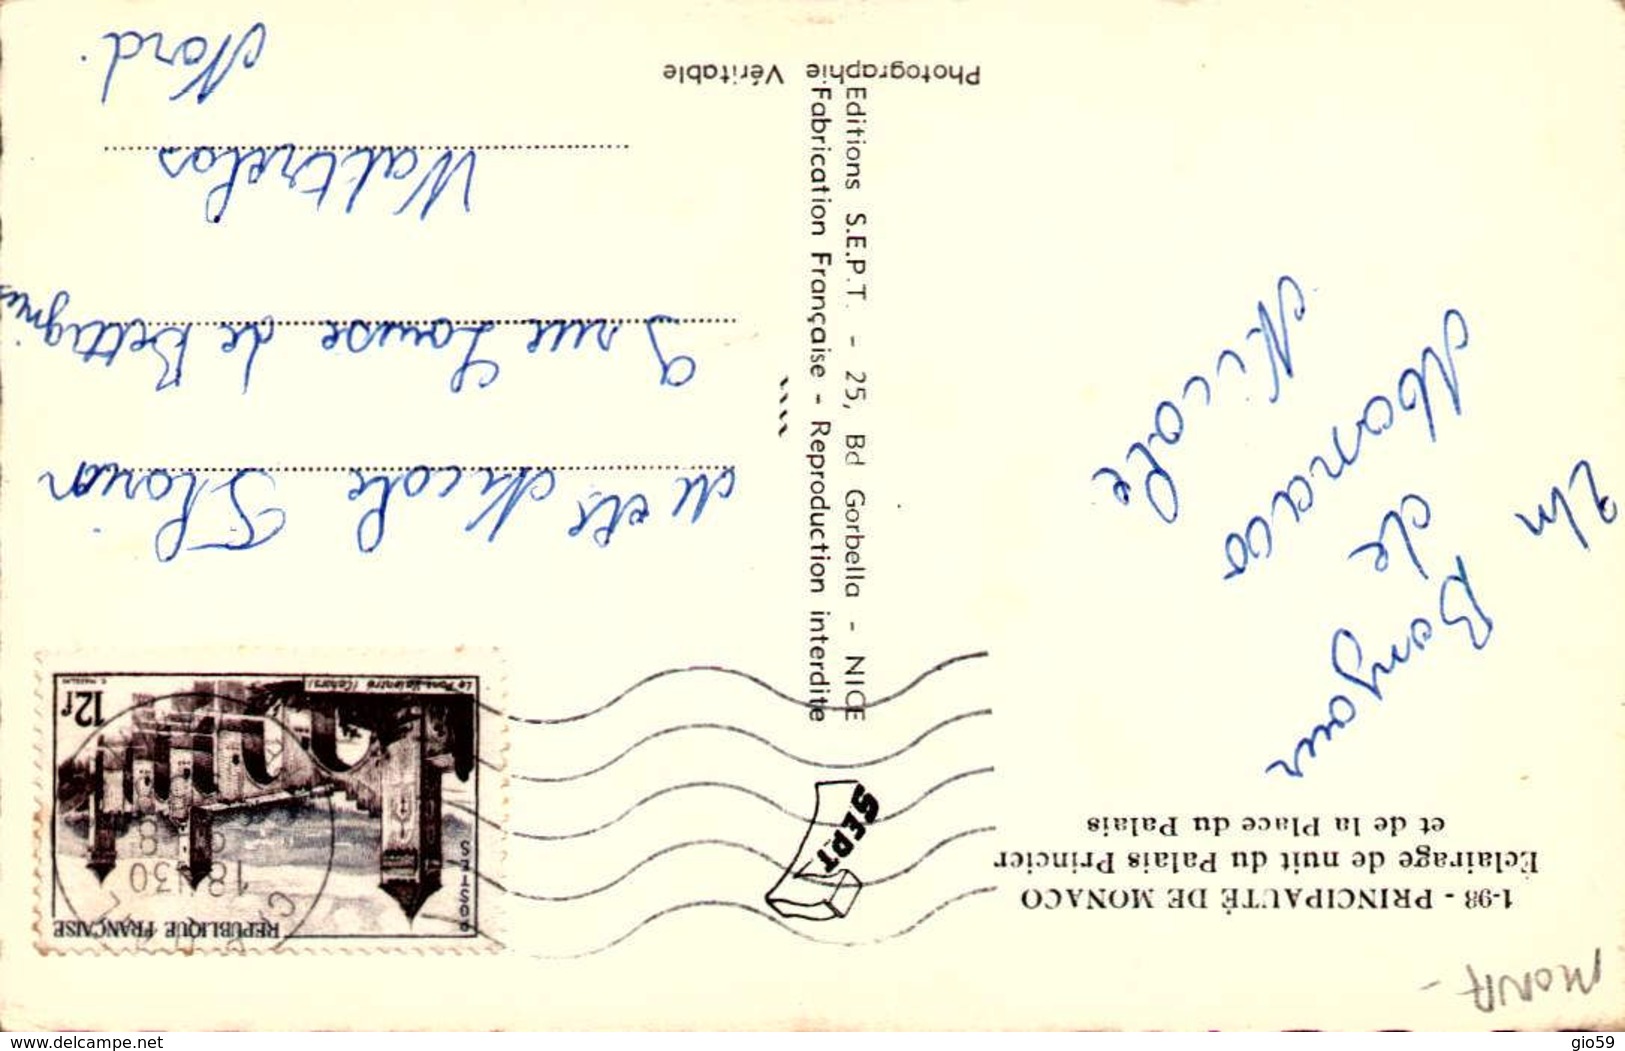 MONA -
1-98 - PRINCIPAUTÉ DE MONACO
Éclairage de nuit du Palais Princier
et de la Place du Palais
Un Bonjour
de
Monaco
Nicole
S.E.P.T.
Editions S.E.P.T. - 25, Bd Gorbella - NICE
Fabrication Française - Reproduction interdite
Photographie Véritable
REPUBLIQUE FRANÇAISE
POSTES
18 H30
12f
Le Pont Valentré (Cahors)
Nicole Florin
9 rue Louise de Bettignies
Wattrelos
Nord.
www.delcampe.net
gio59